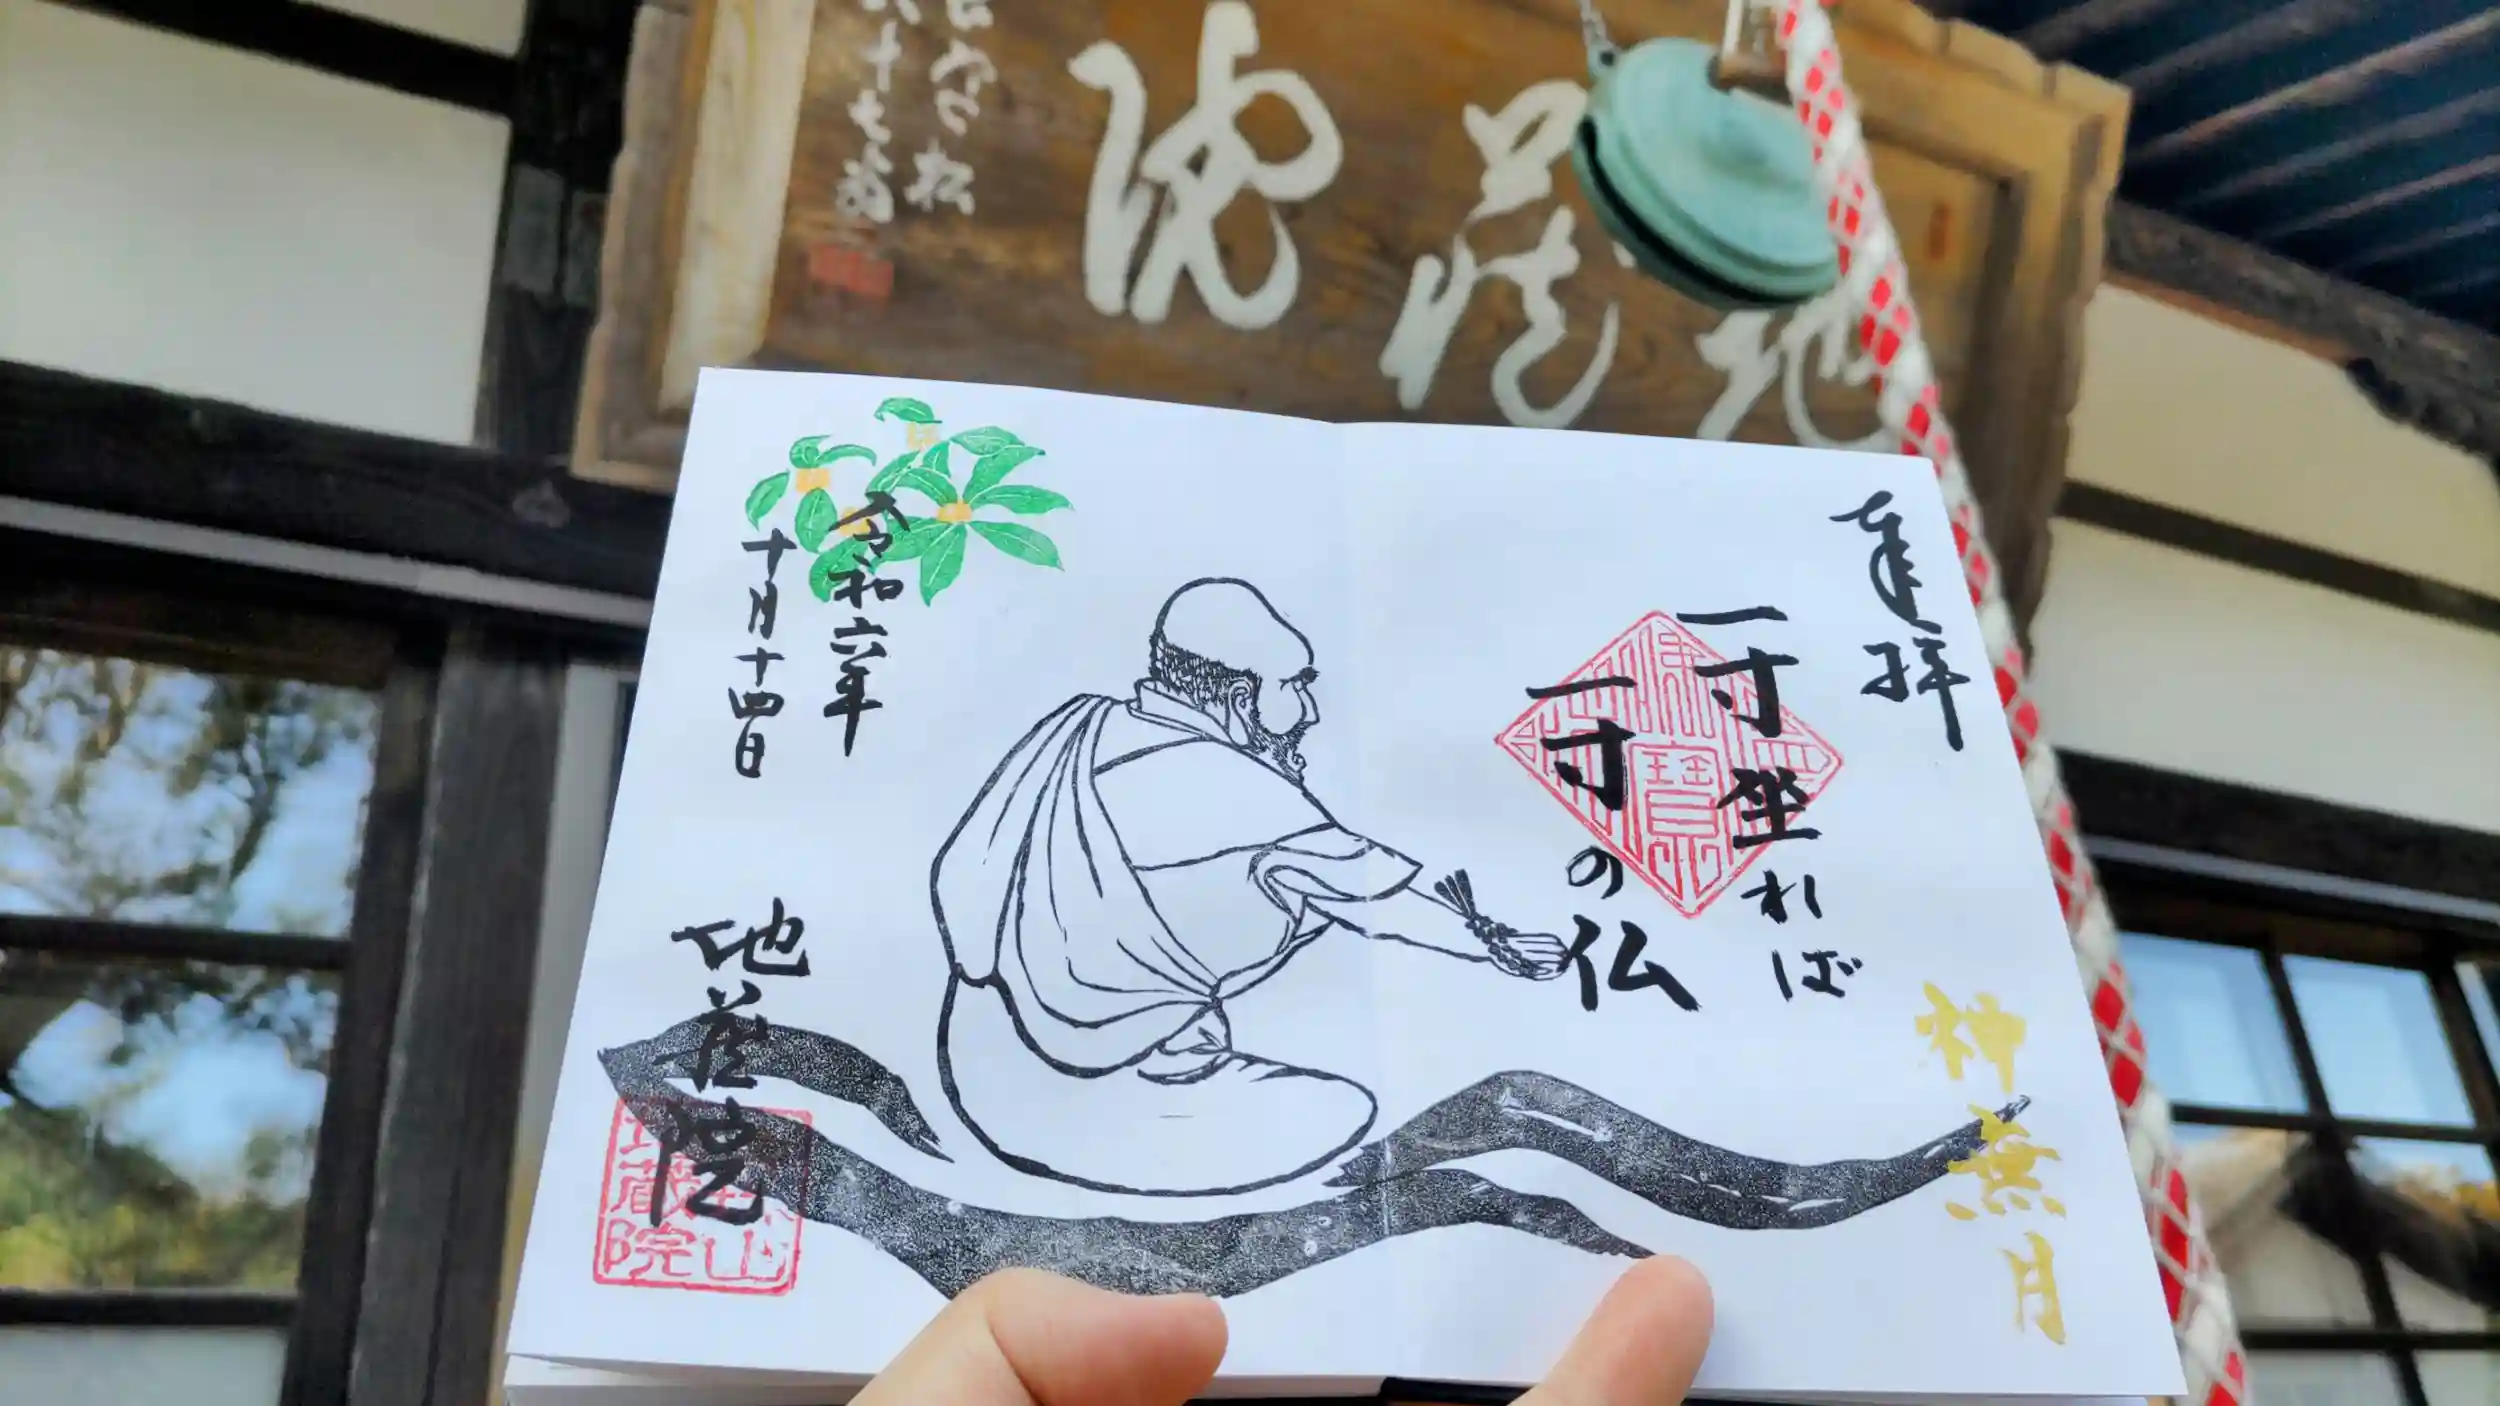 地蔵院
六十七翁
奉拝
一寸坐れば
一寸の仏
神無月
令和六年
十月十四日
地蔵院